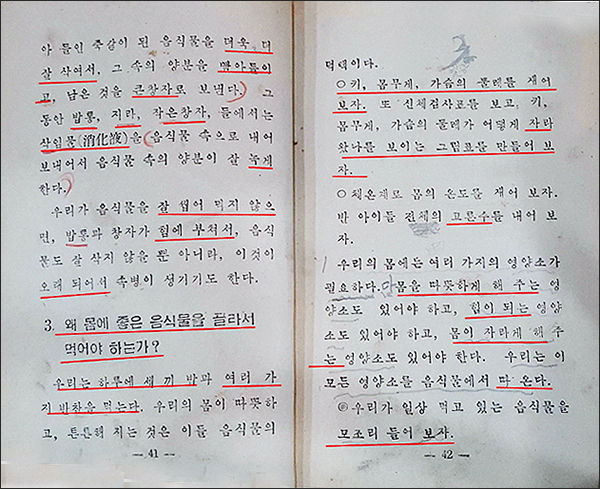 아 들인 죽같이 된 음식물을 더욱 더
잘 삭여서, 그 속의 양분을 빨아들이
고, 남은 것을 큰창자로 보낸다. 그
동안 밥통, 지라, 작은창자, 들에서는
삭임물(消化液)을 음식물 속으로 내어
보내어서 음식물 속의 양분이 잘 녹게
한다.
우리가 음식물을 잘 씹어 먹지 않으
면, 밥통과 창자가 힘에 부쳐서, 음식
물도 잘 삭지 않을 뿐 아니라, 이것이
오래 되어서 속병이 생기기도 한다.
3. 왜 몸에 좋은 음식물을 골라서
먹어야 하는가?
우리는 하루에 세 끼 밥과 여러 가
지 반찬을 먹는다. 우리의 몸이 따뜻하
고, 튼튼해 지는 것은 이들 음식물의
— 41 —
덕택이다.
○키, 몸무게, 가슴의 둘레를 재어
보자. 또 신체검사표를 보고, 키,
몸무게, 가슴의 둘레가 어떻게 자라
왔나를 보이는 그림표를 만들어 보
자.
○체온계로 몸의 온도를 재어 보자.
반 아이들 전체의 고른수를 내어 보
자.
우리의 몸에는 여러 가지의 영양소가
필요하다. 몸을 따뜻하게 해 주는 영
양소도 있어야 하고, 힘이 되는 영양
소도 있어야 하고, 몸이 자라게 해 주
는 영양소도 있어야 한다. 우리는 이
모든 영양소를 음식물에서 다 온다.
◎우리가 일상 먹고 있는 음식물을
모조리 들어 보자.
— 42 —